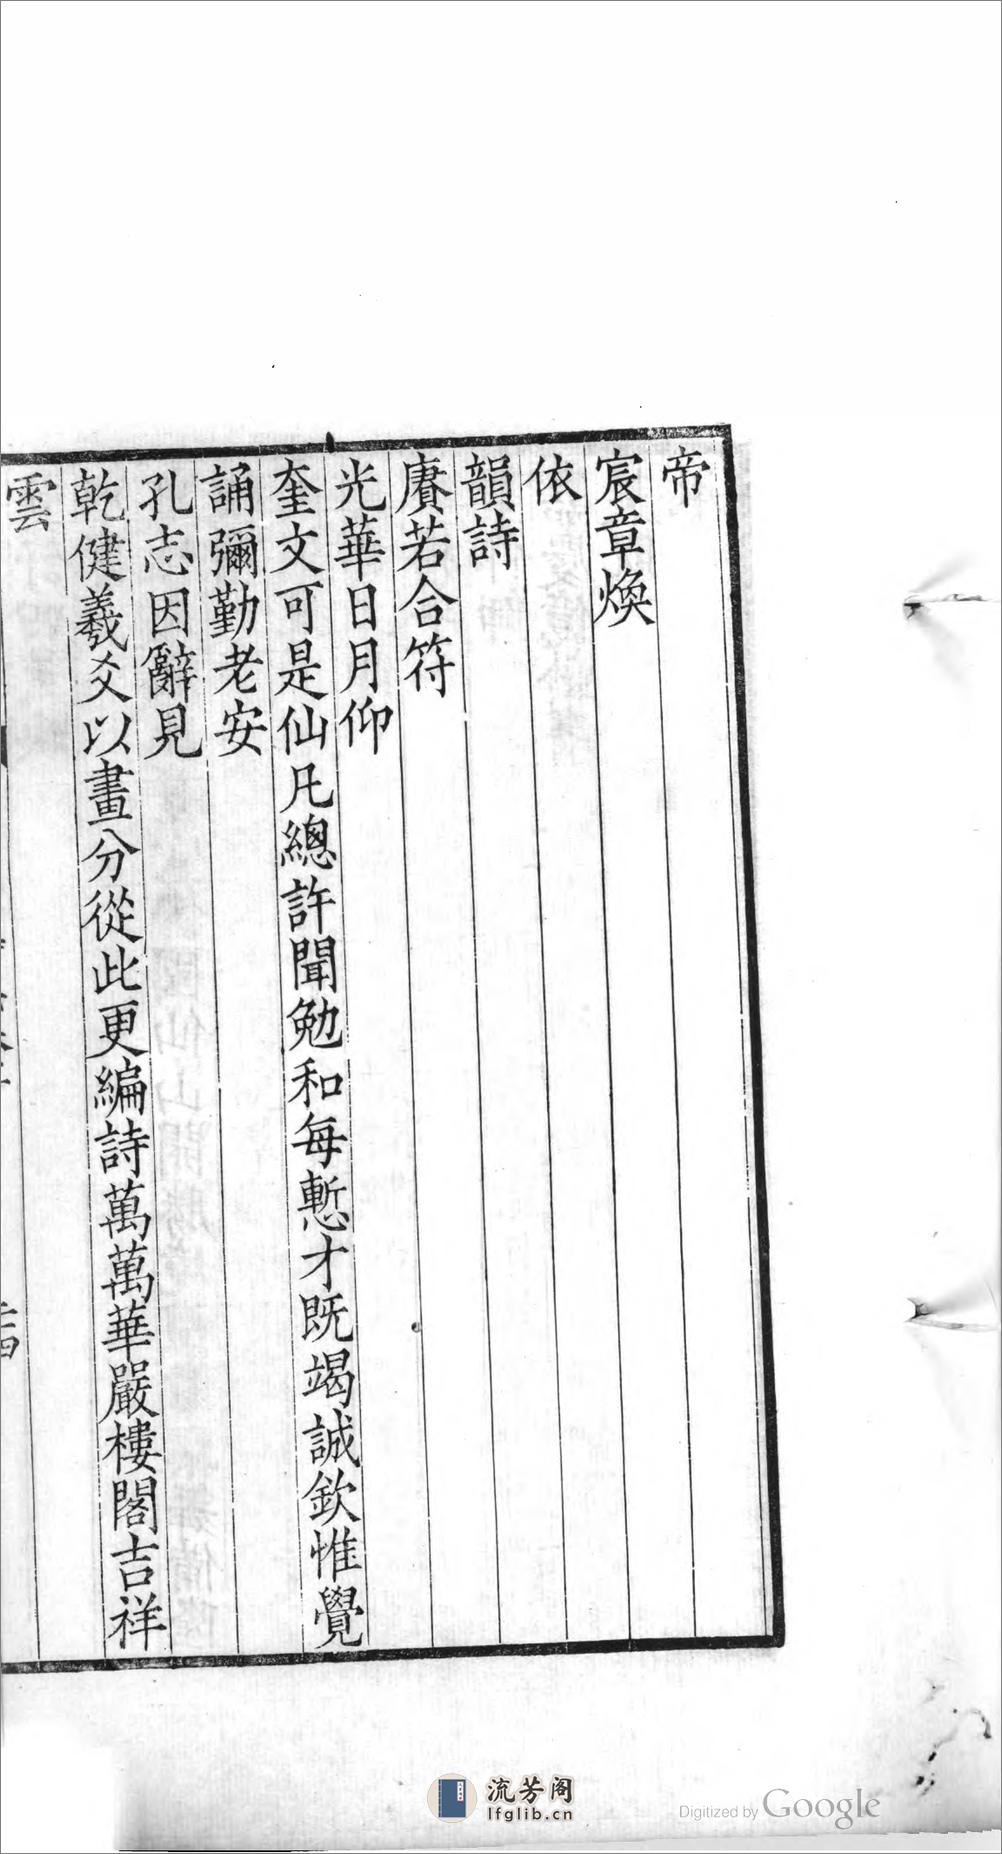 帝
宸章煥
依
韻詩
賡若合符
光華日月仰
奎文可是仙凡總許聞勉和每慙才既竭誠欽惟覺
誦彌勤老安
孔志因辭見
乾健羲爻以畫分從此更編詩萬萬華嚴樓閣吉祥
雲
二四
流芳阁
lfglib.cn
Digitized by Google